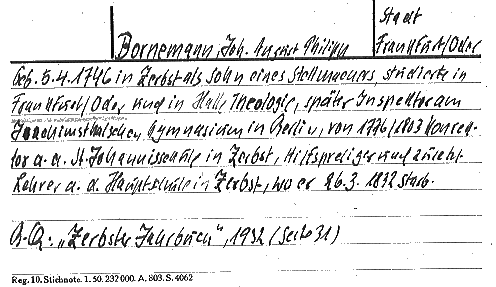 Stadt
Bornemann, Joh. August Philipp Frankfurt/Oder
Geb. 5.4.1746 in Zerbst als Sohn eines Stellmachers, studierte in
Frankfurt/Oder und in Halle Theologie, später Inspektor am
Joachimsthalschen Gymnasium in Berlin, von 1776/1803 Konrek-
tor a. d. St. Johannisschule in Zerbst, Hilfsprediger und zuletzt
Lehrer a. d. Hauptschule in Zerbst, wo er 26.3. 1832 starb.
"Zerbster Jahrbuch", 1932 (Seite 31)
Reg. 10. Stichnote. 1. 50. 232 000. A. 803. S. 4062